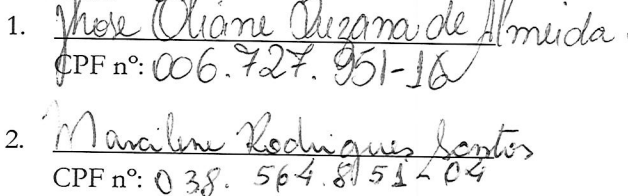 1. Jhose Oliane Suzana de Almeida
CPF nº: 006.727.951-16
2. Marcilene Rodrigues Santos
CPF nº: 038.564.851-04